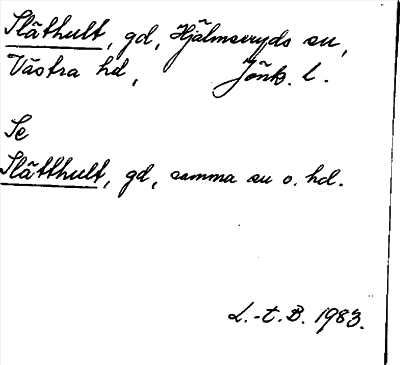 Släthult, gd, Hjälmseryds su,
Västra hd, Jönk. l.
Se
Slätthult, gd, samma su o. hd.
L.-t.B. 1983.